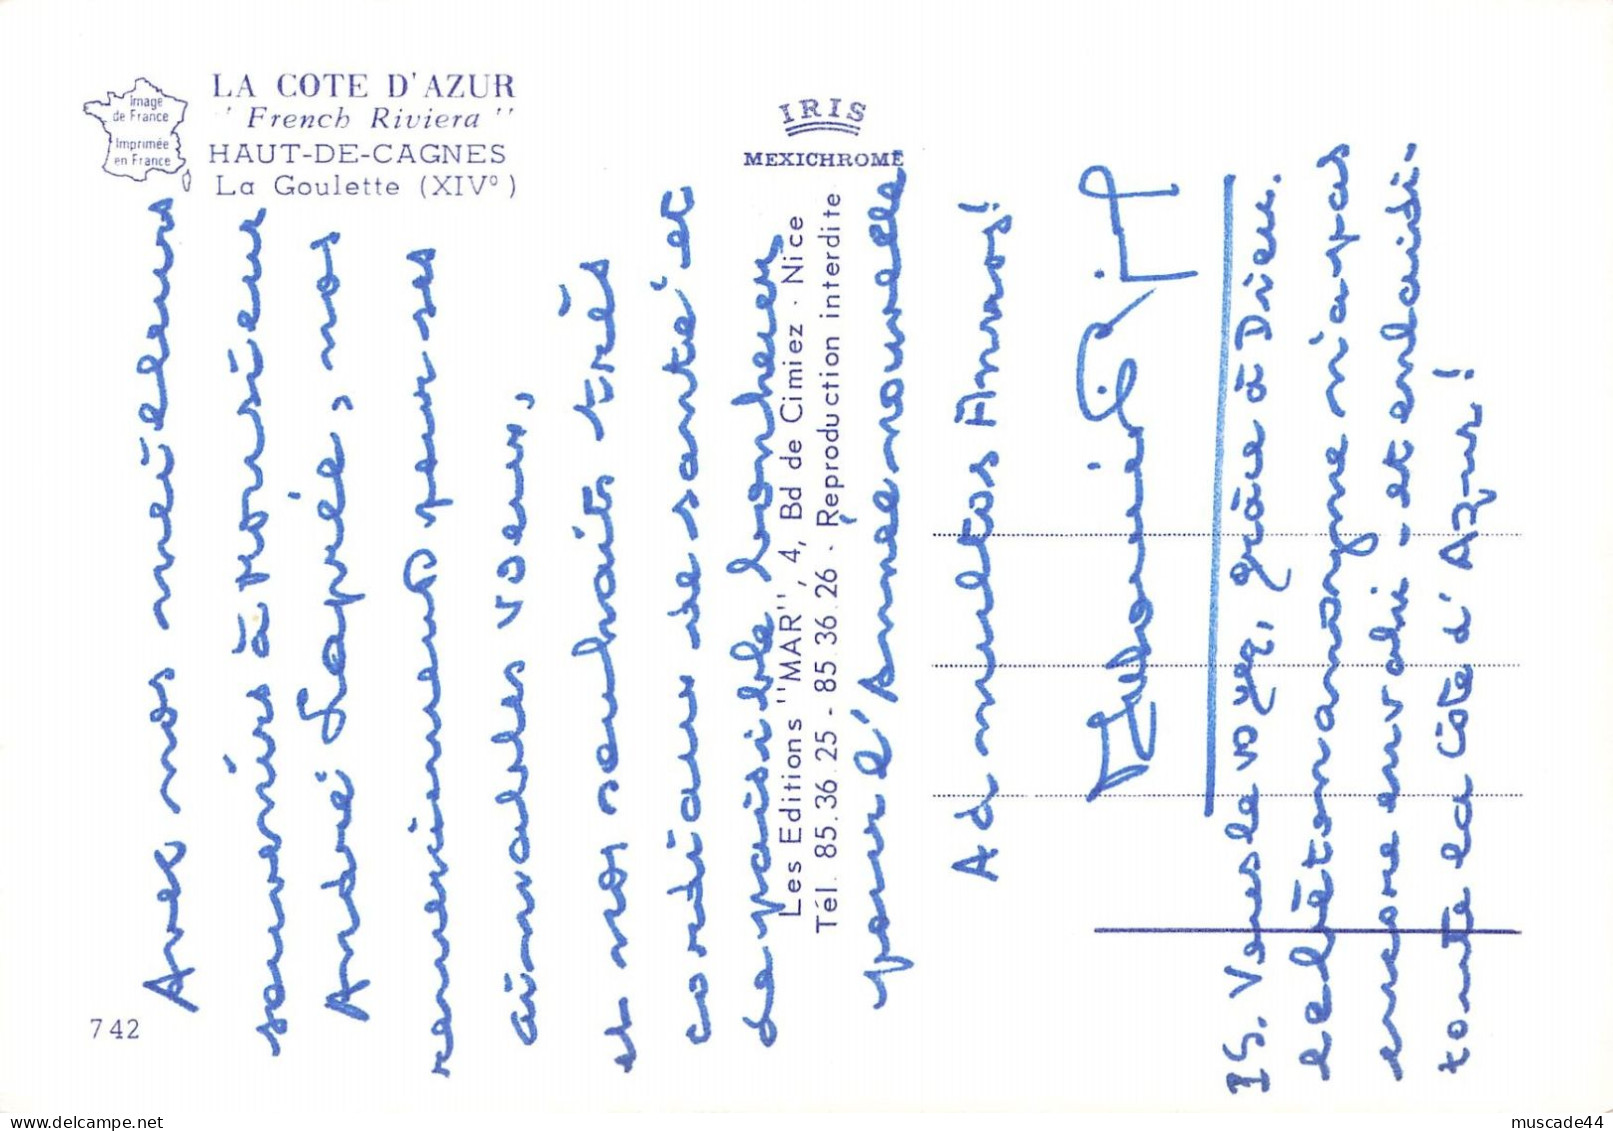 Image
de France
Imprimée
en France
LA COTE D'AZUR
'French Riviera''
HAUT-DE-CAGNES
La Goulette (XIVº)
IRIS
MEXICHROME
Les Editions ''MAR'', 4, Bd de Cimiez · Nice
Tél. 85.36.25 - 85.36.26 · Reproduction interdite
742
Avec nos meilleurs
souvenirs à Monsieur
André, nos
remerciements pour ses
aimables voeux,
et nos souhaits très
cordiaux de santé et
de paisible bonheur
pour l'Année nouvelle
Ad multos Annos!
PS. Vous le voyez, grâce à Dieu.
le béton anonyme n'a pas
encore envahi - et enlaidi -
toute la Côte d'Azur!
muscade44